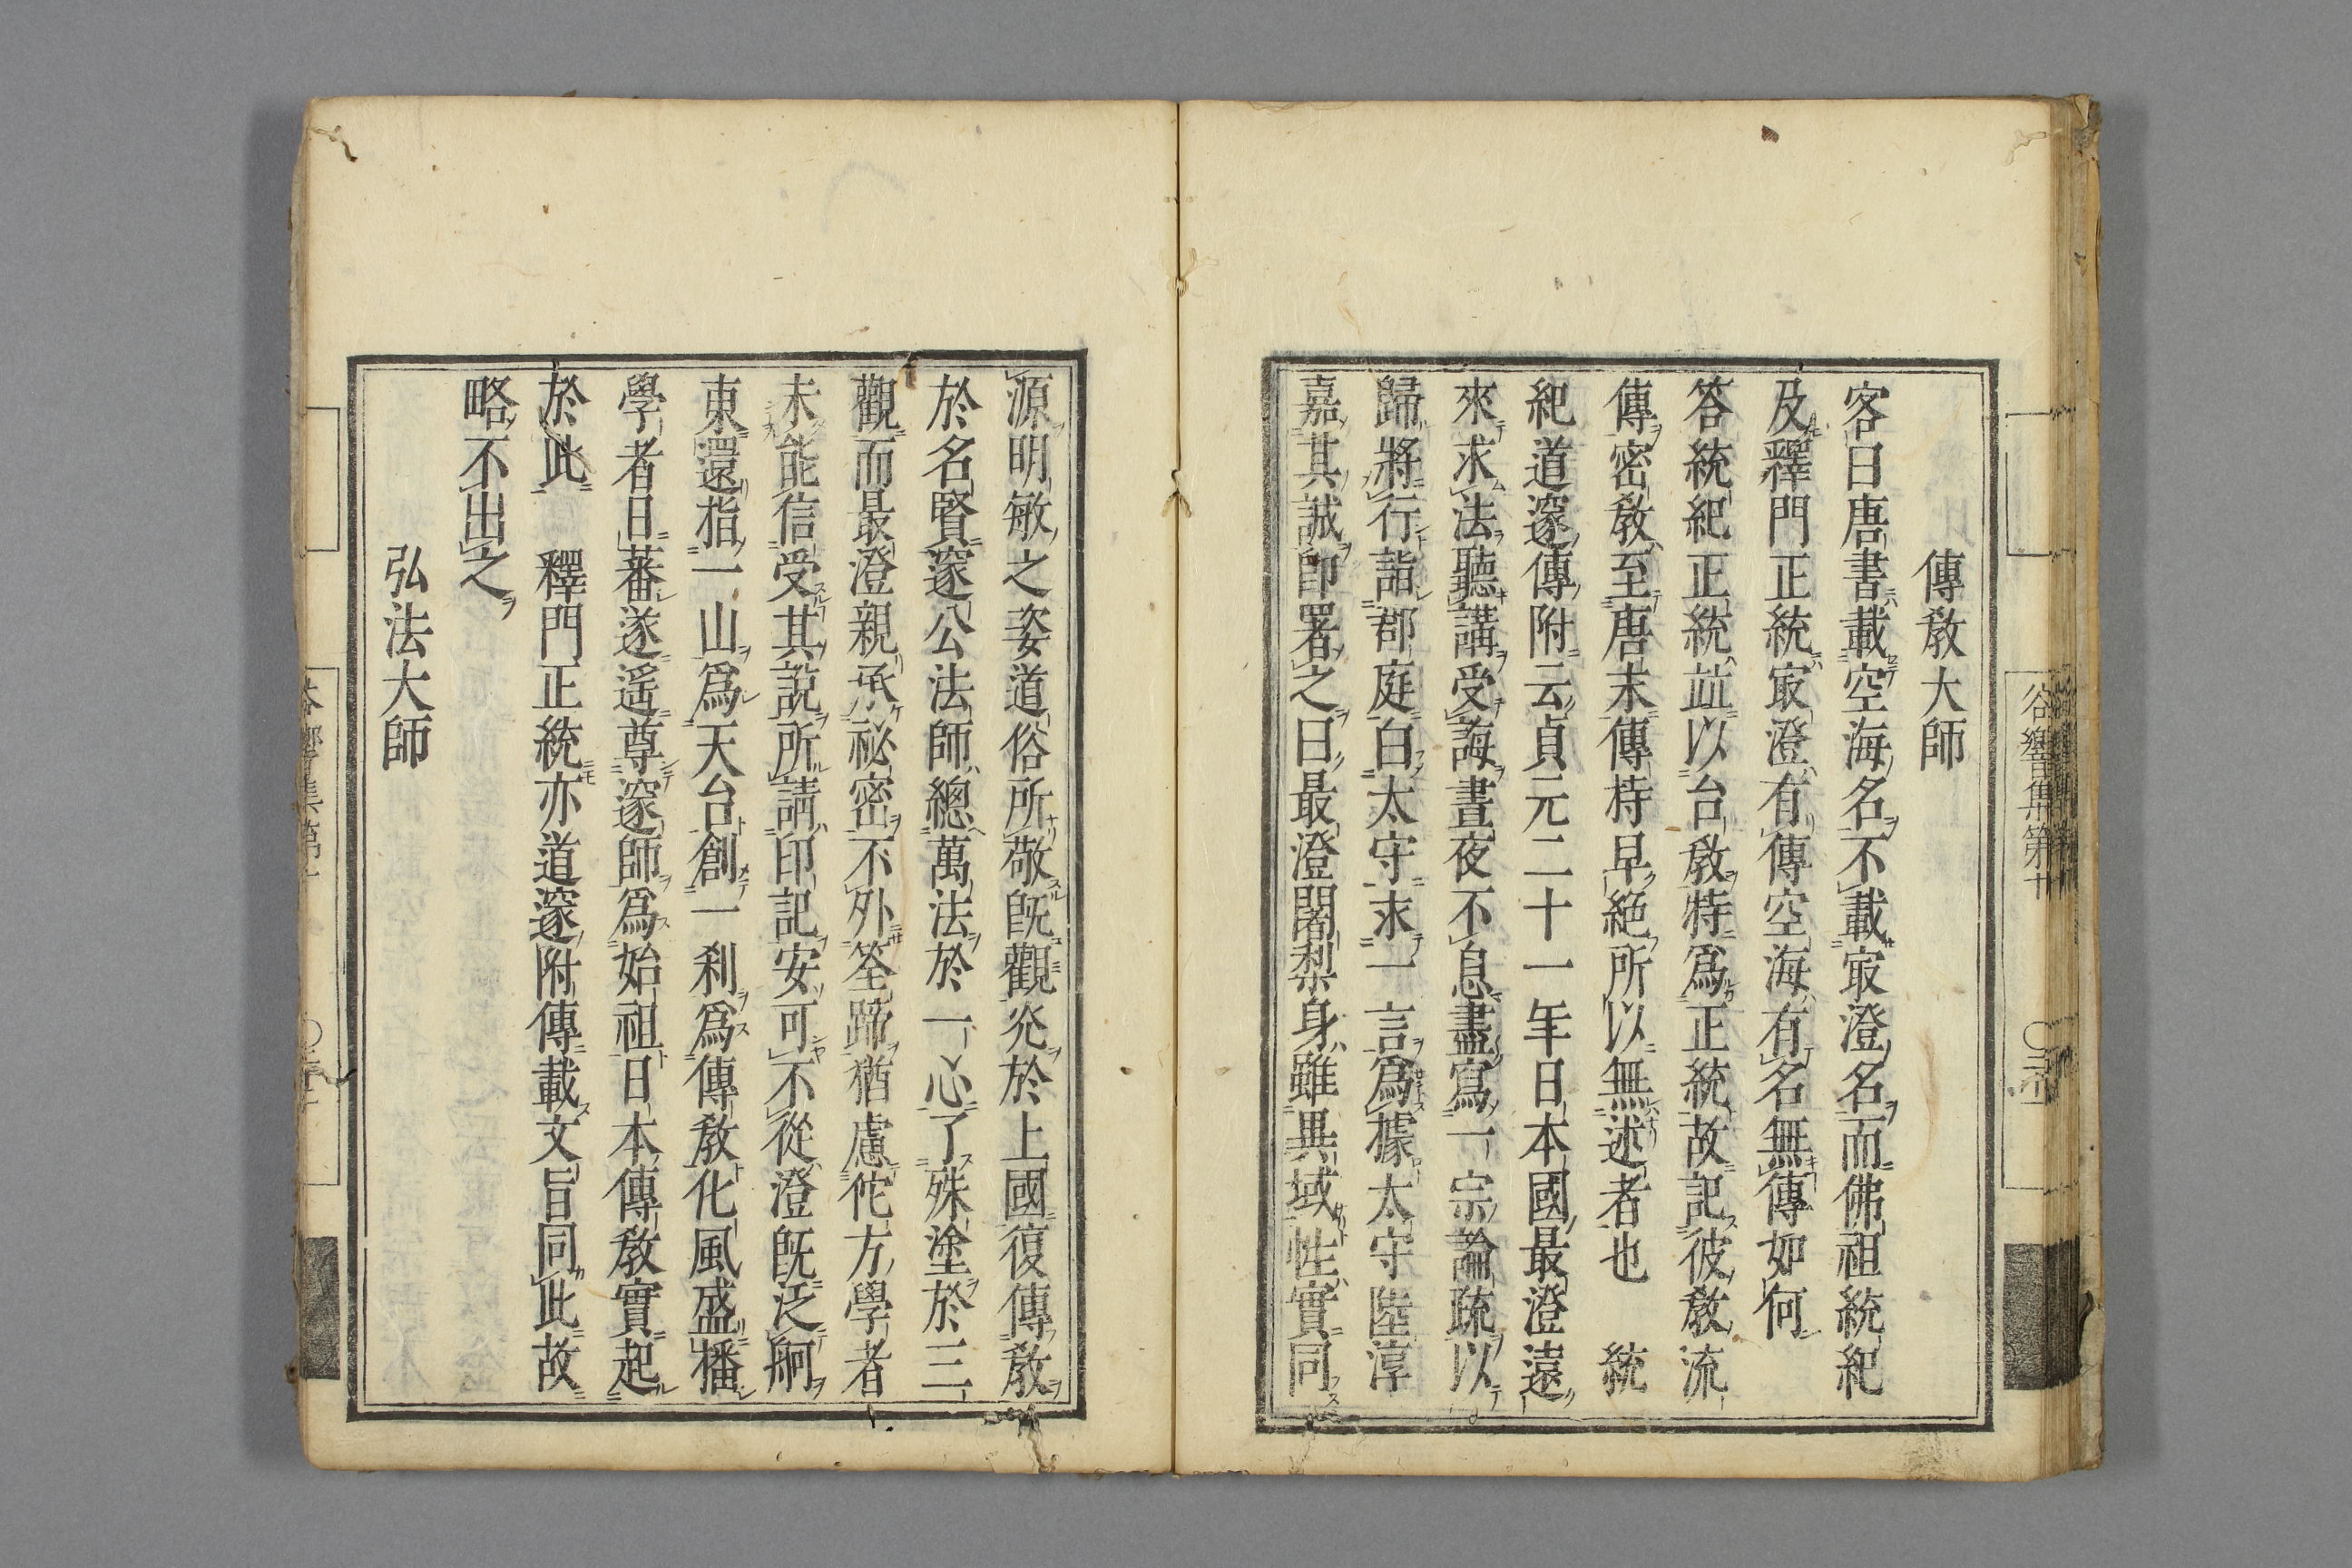 傳教大師
客曰唐書載空海名不載㝡澄名而佛祖統紀
及釋門正統㝡澄有傳空海有名無傳如何
答統紀正統竝以台教特爲正統故記彼教流
傳密教至唐末傳持早絕所以無述者也　統
紀道邃傳附云貞元二十一年日本國最澄遠
來求法聽講受誨晝夜不息盡寫一宗論疏以
歸將行詣郡庭白太守求一言爲據太守陸淳
嘉其誠印署之曰最澄闍梨身雖異域性實同
源明敏之姿道俗所敬旣觀光於上國復傳教
於名賢邃公法師總萬法於一心了殊塗於三
觀而最澄親承祕密不外筌蹄猶慮佗方學者
未能信受其說所請印記安可不從澄旣泛舸
東還指一山爲天台創一刹爲傳教化風盛播
學者日蕃遂遥尊邃師爲始祖日本傳教實起
於此　釋門正統亦道邃附傳載文旨同此故
略不出之
弘法大師
谷響集第十